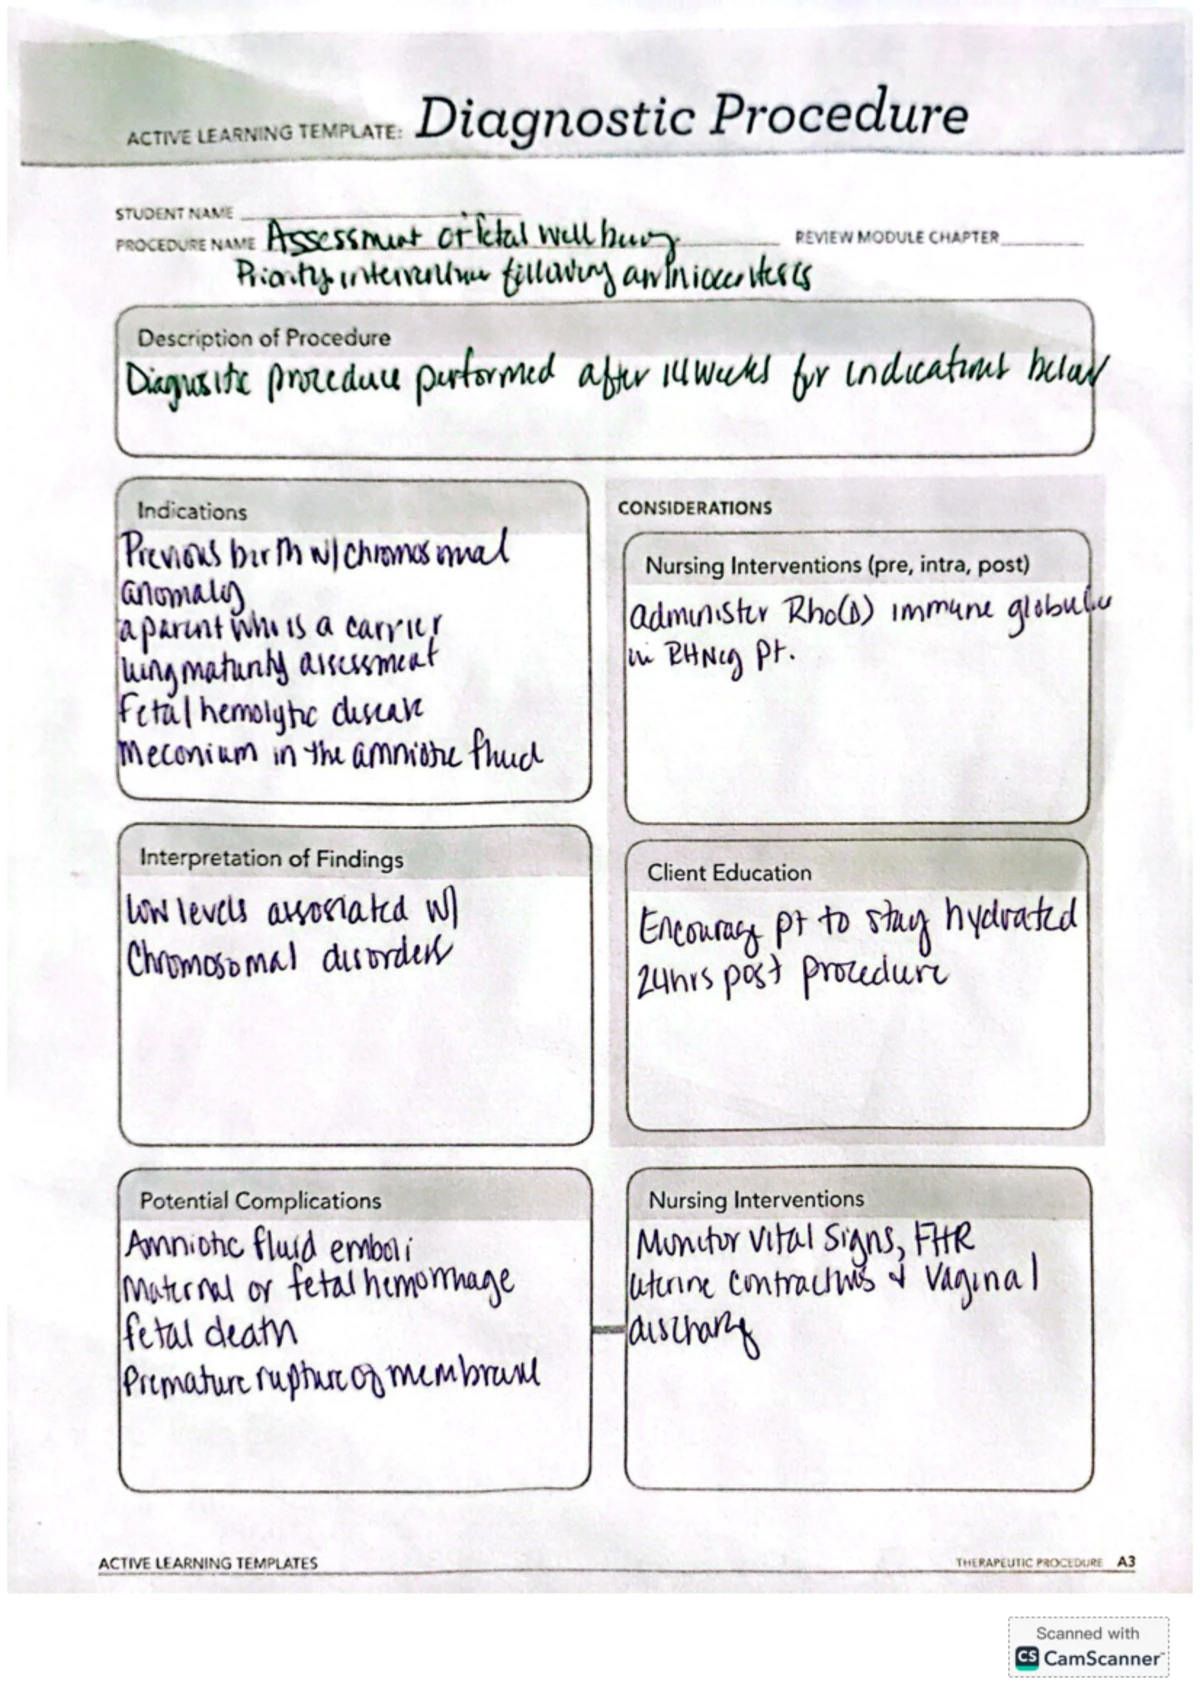 ACTIVE LEARNING TEMPLATE: Diagnostic Procedure
STUDENT NAME
PROCEDURE NAME Assessment of fetal well being REVIEW MODULE CHAPTER
Priority intervention following amniocentesis
Description of Procedure
Diagnostic procedure performed after 14 weeks for indications below
Indications
Previous birth w/ chromosomal
anomaly
a parent who is a carrier
lung maturity assessment
Fetal hemolytic disease
Meconium in the amniotic fluid
CONSIDERATIONS
Nursing Interventions (pre, intra, post)
administer Rho(D) immune globulin
in RHNeg Pt.
Interpretation of Findings
low levels associated w/
Chromosomal disorders
Client Education
Encourage pt to stay hydrated
24hrs post procedure
Potential Complications
Amniotic fluid emboli
Maternal or fetal hemorrhage
fetal death
Premature rupture of membrane
Nursing Interventions
Monitor vital signs, FHR
uterine contractions & vaginal
discharge
ACTIVE LEARNING TEMPLATES
THERAPEUTIC PROCEDURE A3
Scanned with
CS CamScanner